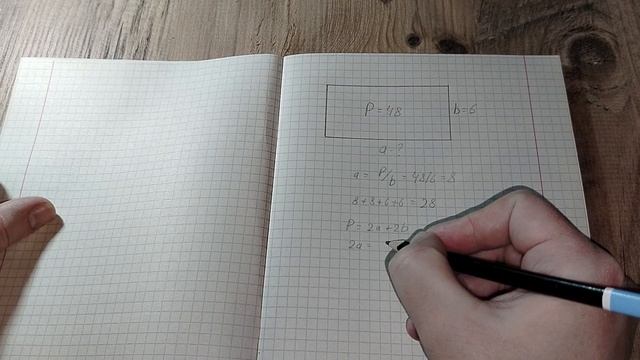 P = 48
b = 6
a - ?
a = P/b = 48/6 = 8
8 + 8 + 6 + 6 = 28
P = 2a + 2b
2a =